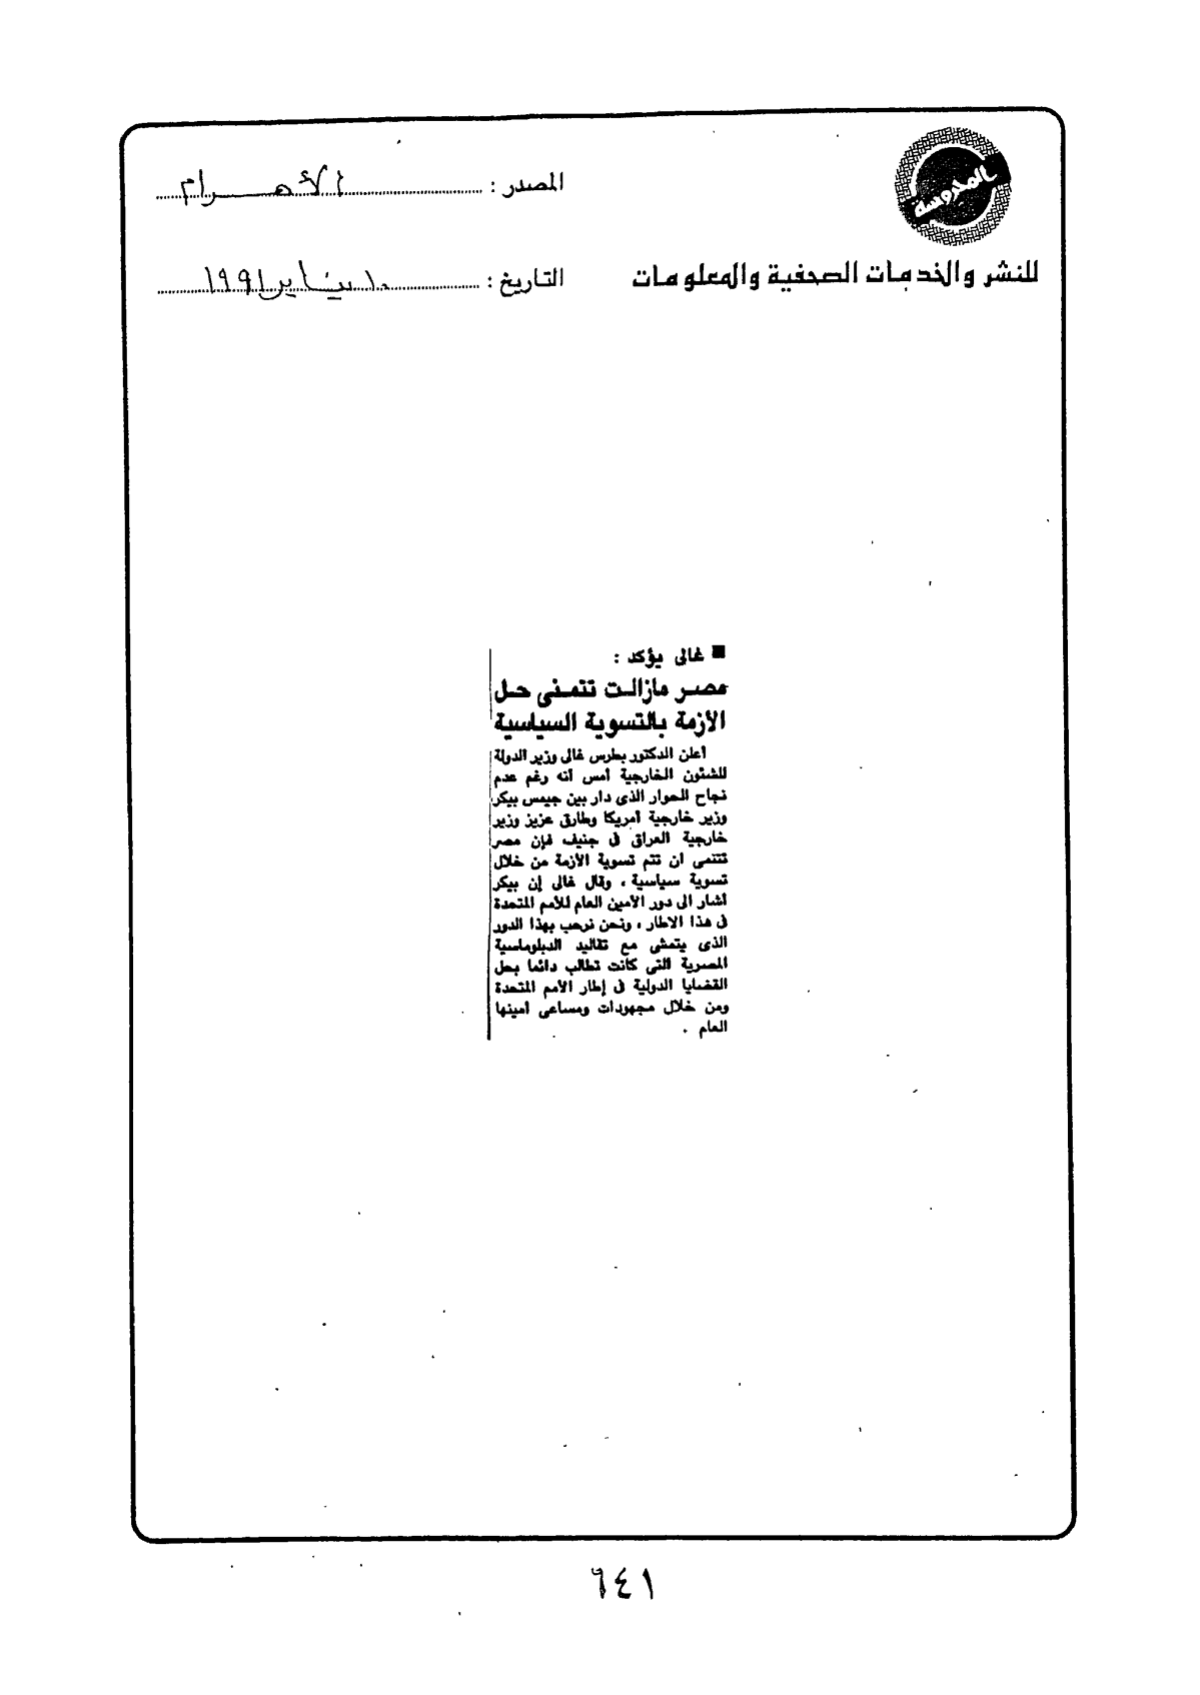 المحروسة
المصدر : الأهرام
للنشر والخدمات الصحفية والمعلومات
التاريخ : ١٠ يناير ١٩٩١
■ غالى يؤكد :
مصر مازالت تتمنى حل
الأزمة بالتسوية السياسية
أعلن الدكتور بطرس غالى وزير الدولة
للشئون الخارجية أمس أنه رغم عدم
نجاح الحوار الذى دار بين جيمس بيكر
وزير خارجية أمريكا وطارق عزيز وزير
خارجية العراق فى جنيف فإن مصر
تتمنى ان تتم تسوية الأزمة من خلال
تسوية سياسية ، وقال غالى إن بيكر
أشار الى دور الأمين العام للأمم المتحدة
فى هذا الاطار ، ونحن نرحب بهذا الدور
الذى يتمشى مع تقاليد الدبلوماسية
المصرية التى كانت تطالب دائما بحل
القضايا الدولية فى إطار الأمم المتحدة
ومن خلال مجهودات ومساعى أمينها
العام .
٦٤١